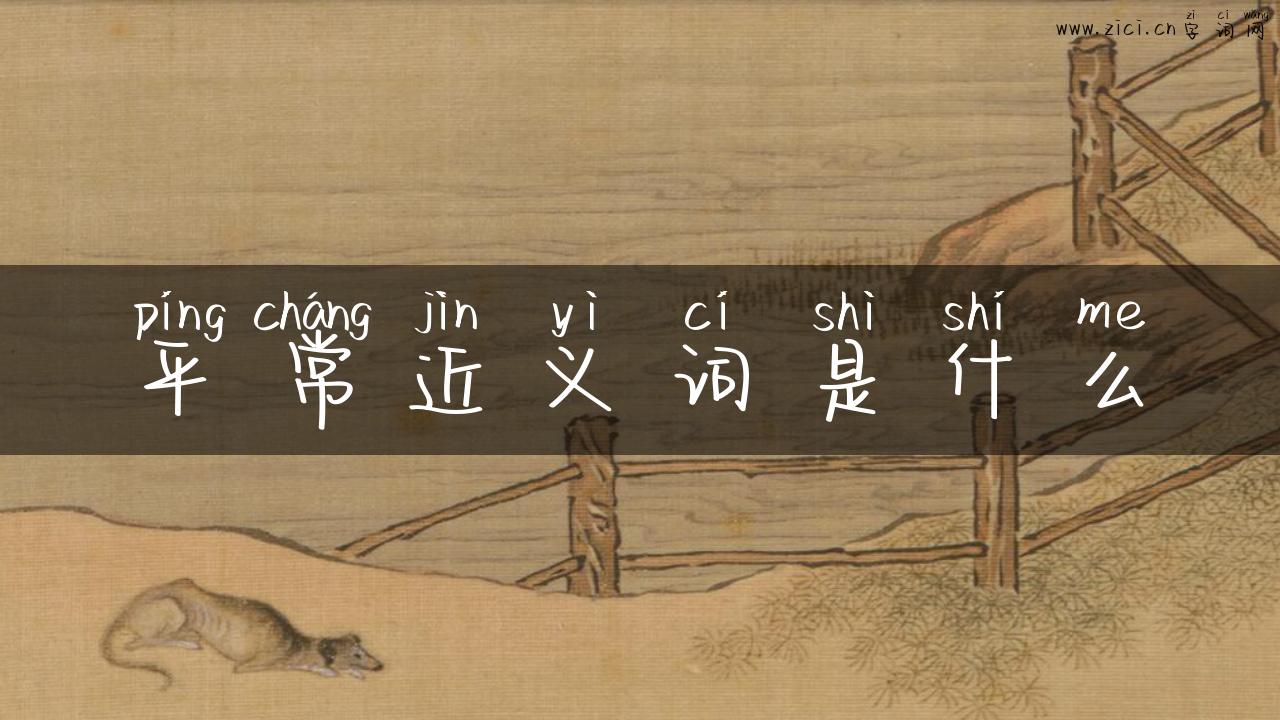 zì cí wǎng
www.zici.cn 字词网
píng cháng jìn yì cí shì shí me
平常近义词是什么